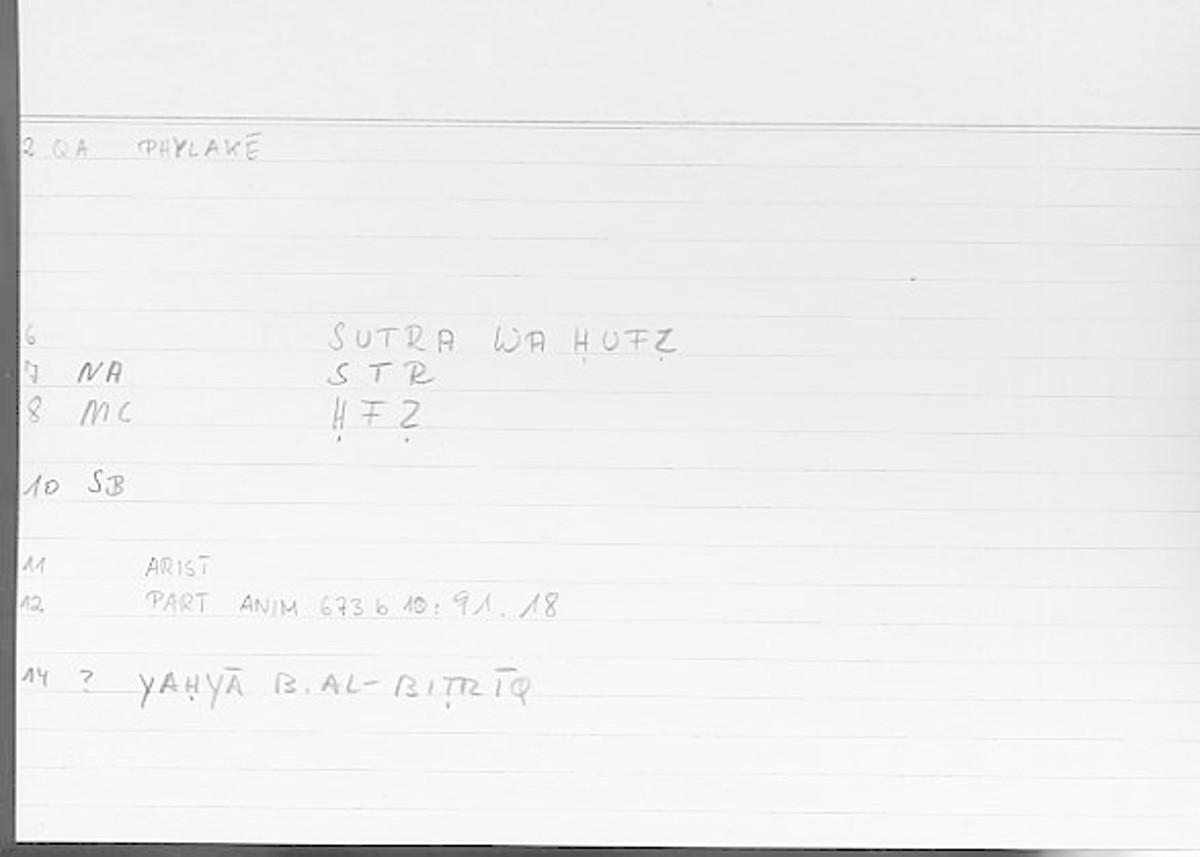 2 QA PHYLAKĒ
6 SUTRA WA ḤUFẒ
7 NA STR
8 MC ḤFẒ
10 SB
11 ARIST
12 PART ANIM 673 b 10: 91. 18
14 ? YAḤYĀ B. AL-BIṬRĪQ